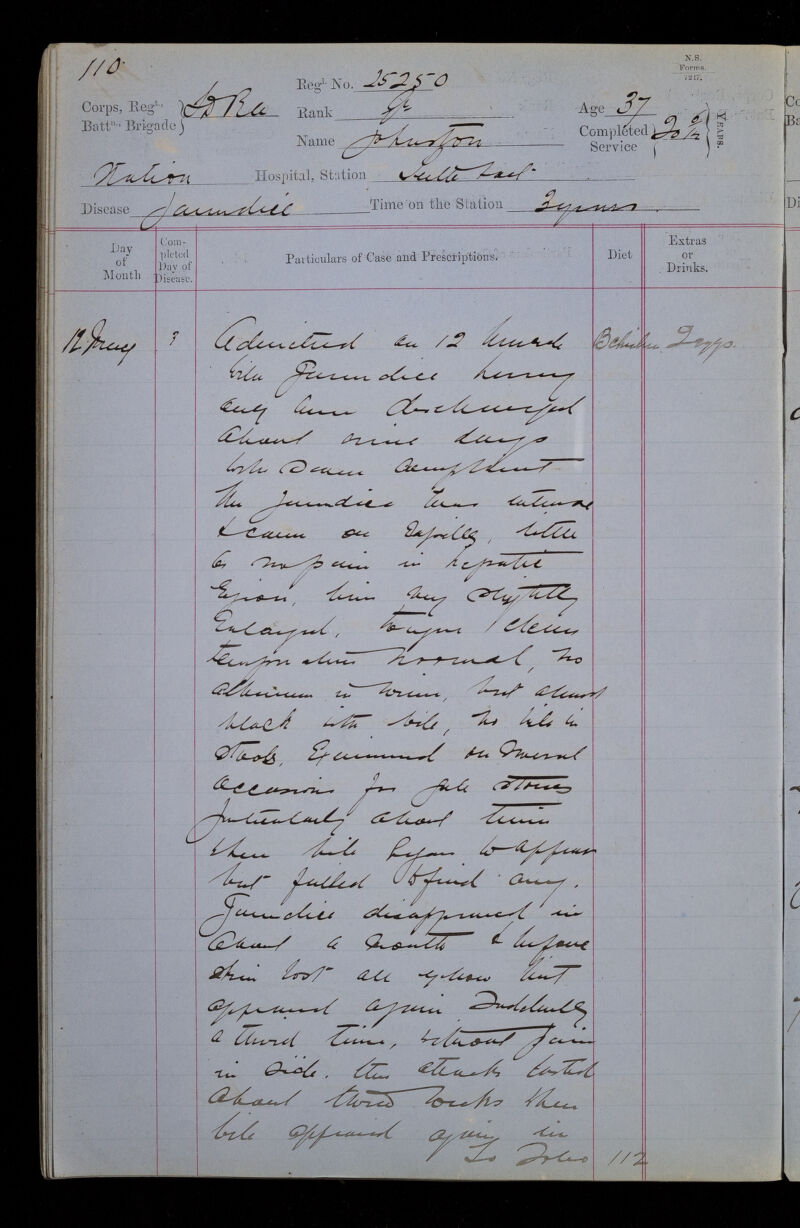 110
N.S.
Forms.
1217.
Regl. No. 25250
Corps, Regt.
Battn. Brigade
Rank Gr
Age 37
Name Johnston
Completed
Service
YEARS.
Station Hospital, Station
Disease Jaundice Time on the Station 3 years
Day
of
Month
Completed
Day of
Disease.
Particulars of Case and Prescriptions.
Diet
Extras
or
Drinks.
12 ? Admitted on 12 2 eggs.
with Jaundice having
only been discharged
about nine days
with same complaint
The Jaundice was intense
& came on rapidly, little
or no pain in hepatic
region, liver very slightly
enlarged, tongue clean
temperature normal, no
albumen in urine, but almost
black with bile, no bile in
stools. Examined on several
occasions for gall stones
particularly about time
when bile began to appear
but failed to find any.
Jaundice disappeared in
about a month & before
skin lost all yellow tint
appeared again suddenly
a third time, without pain
in side. this attack lasted
about three weeks then
bile appeared again in
To Folio 112